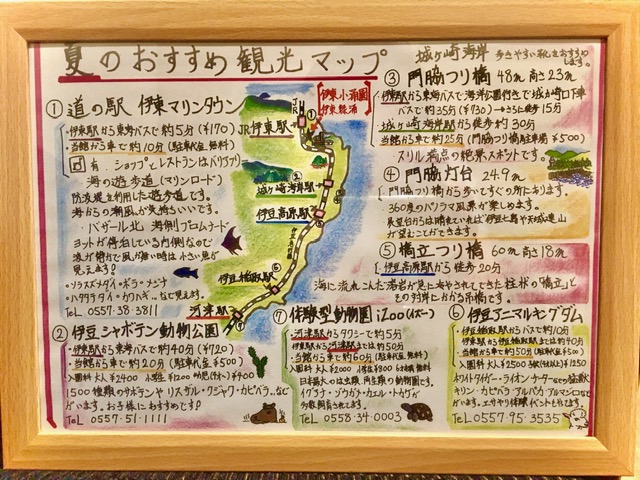 夏のおすすめ観光マップ
① 道の駅 伊東マリンタウン
・伊東駅から東海バスで約5分(¥170)
・当館から車で約10分(駐車代金無料)
有. ショップとレストランはバリアフリー
海の遊歩道(マリンロード)
防波堤を利用した遊歩道です。
海からの潮風が気持ちいいです。
バザール北 海側プロムナード
ヨットが停泊している内側なので
波が穏やかで風が無い時は小さい魚が
見えます!
・ソラスズメダイ・ボラ・メジナ
・ハタタテダイ・カワハギなど見えます。
TEL 0557-38-3811
② 伊豆シャボテン動物公園
・伊東駅から東海バスで約40分(¥720)
・当館から車で約20分(駐車代金¥500)
入園料 大人 ¥2400 小学生 ¥1200 幼児 ¥400
1500種類のサボテンやリスザル・クジャク・カピバラなど
がいます。お子様におすすめです!
TeL 0557-51-1111
JR
JR伊東駅
伊東小涌園
伊東緑涌
①
②
城ヶ崎海岸駅
伊豆高原駅
伊豆稲取駅
⑥
河津駅
⑦
城ヶ崎海岸 歩きやすい靴をおすすめ
します。
③ 門脇つり橋 48m 高さ23m
伊東駅から東海バスで海洋公園行きで城ヶ崎口下車
バスで約35分(¥730)→さらに徒歩15分
城ヶ崎海岸駅から徒歩約30分
当館から車で約25分(門脇つり橋駐車場¥500)
スリル満点の絶景スポットです。
④ 門脇灯台 24.9m
門脇つり橋から歩いてすぐの所にあります。
360度のパノラマ風景が楽しめます。
展望台からは晴れていれば伊豆七島や天城連山
が望むことができます。
⑤ 橋立つり橋 60m 高さ18m
伊豆高原駅から徒歩20分
海に流れこんだ溶岩が見に海やされてできた柱状の「橋立」と
その対岸にかかる吊橋です。
⑦ 体験型動物園 iZoo(イズー)
・河津駅からタクシーで約5分
伊東駅から河津駅までは約50分
・当館から車で約60分(駐車代金無料)
入園料 大人 ¥2000 小学生 ¥800 6才以下無料
日本最大のは虫類 両生類の動物園です。
イグアナ・ゾウガメ・カエル・トカゲが
多数飼育されています。
TeL 0558-34-0003
⑥ 伊豆アニマルキングダム
・伊豆稲取駅からバスで約10分
伊東駅から伊豆稲取駅までは約40分
・当館から車で約50分(駐車代金¥500)
入園料 大人 ¥2500
ホワイトタイガー・ライオン・サーバルなどの猛獣や
キリン・カピバラ・アルパカ・アルマジロなどが
います。エサやり体験イベントもしてます。
TeL 0557-95-3535